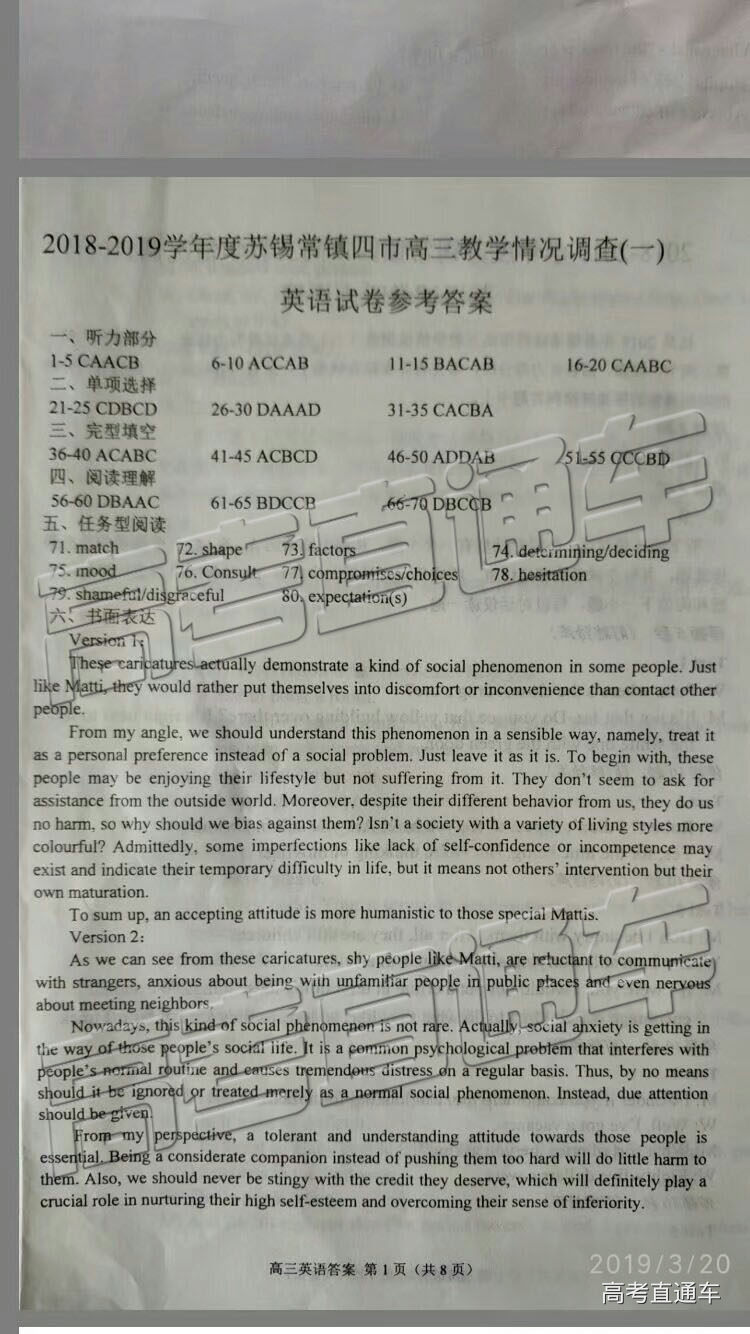 2018-2019学年度苏锡常镇四市高三教学情况调查(一)
英语试卷参考答案
一、听力部分
1-5 CAACB 6-10 ACCAB 11-15 BACAB 16-20 CAABC
二、单项选择
21-25 CDBCD 26-30 DAAAD 31-35 CACBA
三、完型填空
36-40 ACABC 41-45 ACBCD 46-50 ADDAB 51-55 CCCBD
四、阅读理解
56-60 DBAAC 61-65 BDCCB 66-70 DBCCB
五、任务型阅读
71. match 72. shape 73. factors 74. determining/deciding
75. mood 76. Consult 77. compromises/choices 78. hesitation
79. shameful/disgraceful 80. expectation(s)
六、书面表达
Version 1:
These caricatures actually demonstrate a kind of social phenomenon in some people. Just
like Matti, they would rather put themselves into discomfort or inconvenience than contact other
people.
From my angle, we should understand this phenomenon in a sensible way, namely, treat it
as a personal preference instead of a social problem. Just leave it as it is. To begin with, these
people may be enjoying their lifestyle but not suffering from it. They don't seem to ask for
assistance from the outside world. Moreover, despite their different behavior from us, they do us
no harm, so why should we bias against them? Isn't a society with a variety of living styles more
colourful? Admittedly, some imperfections like lack of self-confidence or incompetence may
exist and indicate their temporary difficulty in life, but it means not others' intervention but their
own maturation.
To sum up, an accepting attitude is more humanistic to those special Mattis.
Version 2:
As we can see from these caricatures, shy people like Matti, are reluctant to communicate
with strangers, anxious about being with unfamiliar people in public places and even nervous
about meeting neighbors.
Nowadays, this kind of social phenomenon is not rare. Actually, social anxiety is getting in
the way of those people's social life. It is a common psychological problem that interferes with
people's normal routine and causes tremendous distress on a regular basis. Thus, by no means
should it be ignored or treated merely as a normal social phenomenon. Instead, due attention
should be given.
From my perspective, a tolerant and understanding attitude towards those people is
essential. Being a considerate companion instead of pushing them too hard will do little harm to
them. Also, we should never be stingy with the credit they deserve, which will definitely play a
crucial role in nurturing their high self-esteem and overcoming their sense of inferiority.
高三英语答案 第 1 页（共 8 页）
2019/3/20
高考直通车
高考直通车
高考直通车